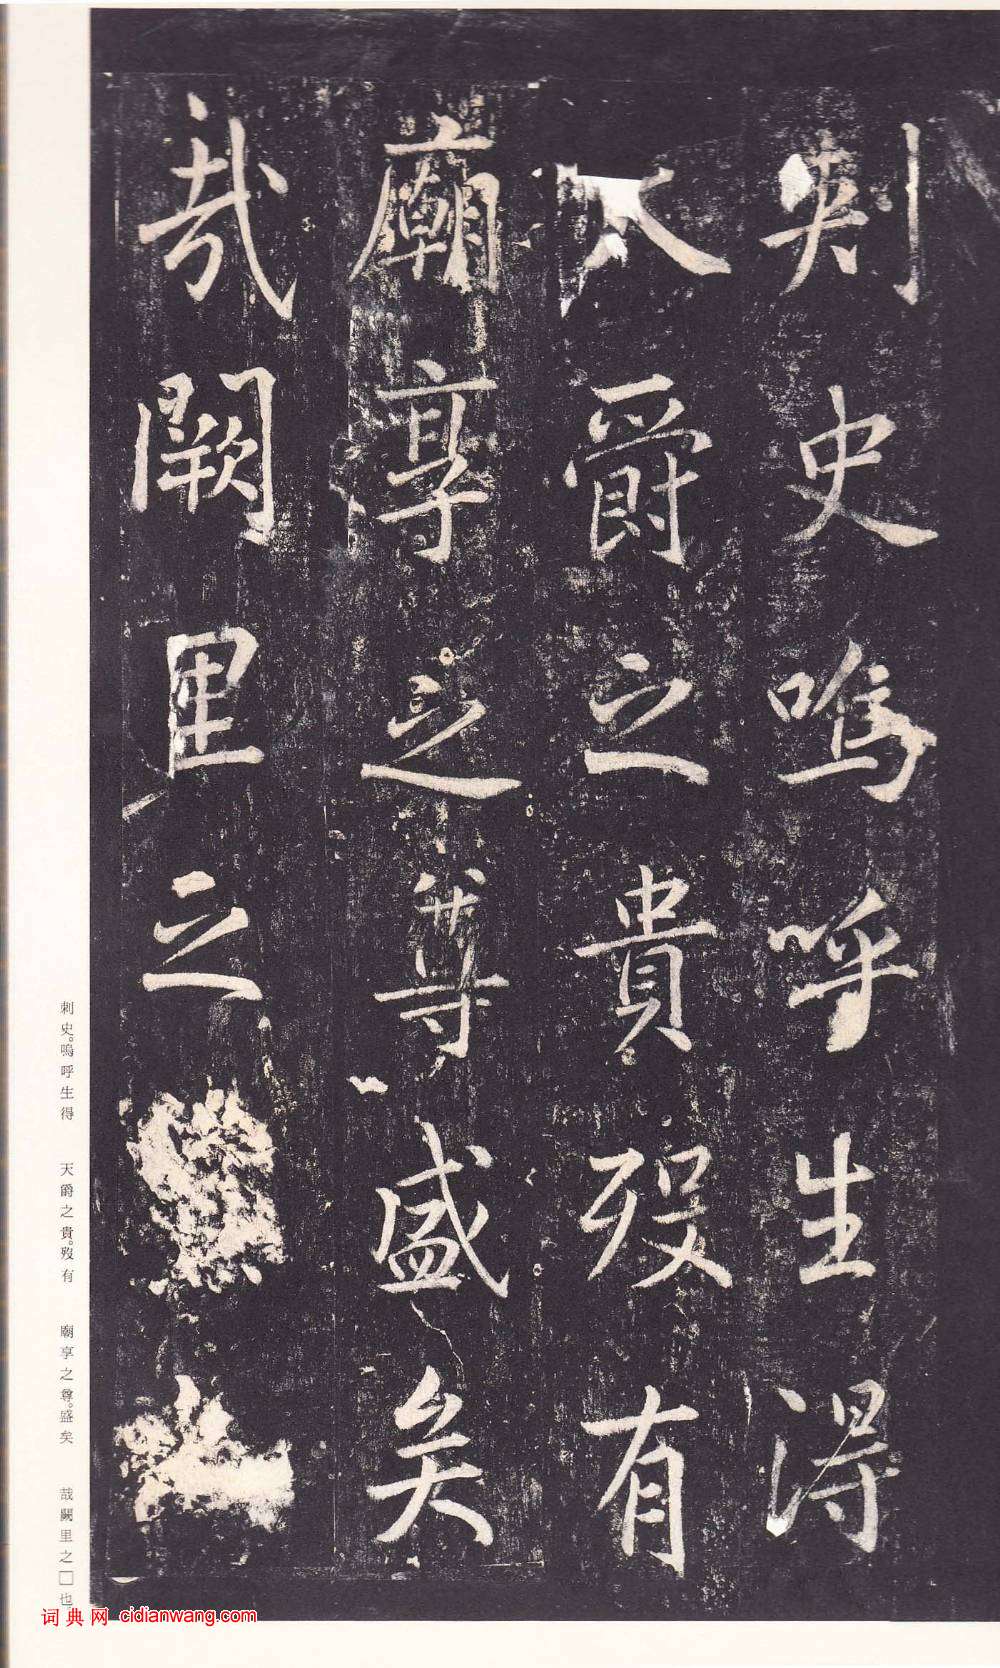 刺史嗚呼生得
天爵之貴歿有
廟享之尊盛矣
哉闕里之
刺史。嗚呼生得 天爵之貴。歿有 廟享之尊。盛矣 哉闕里之□也
词典网 cidianwang.com